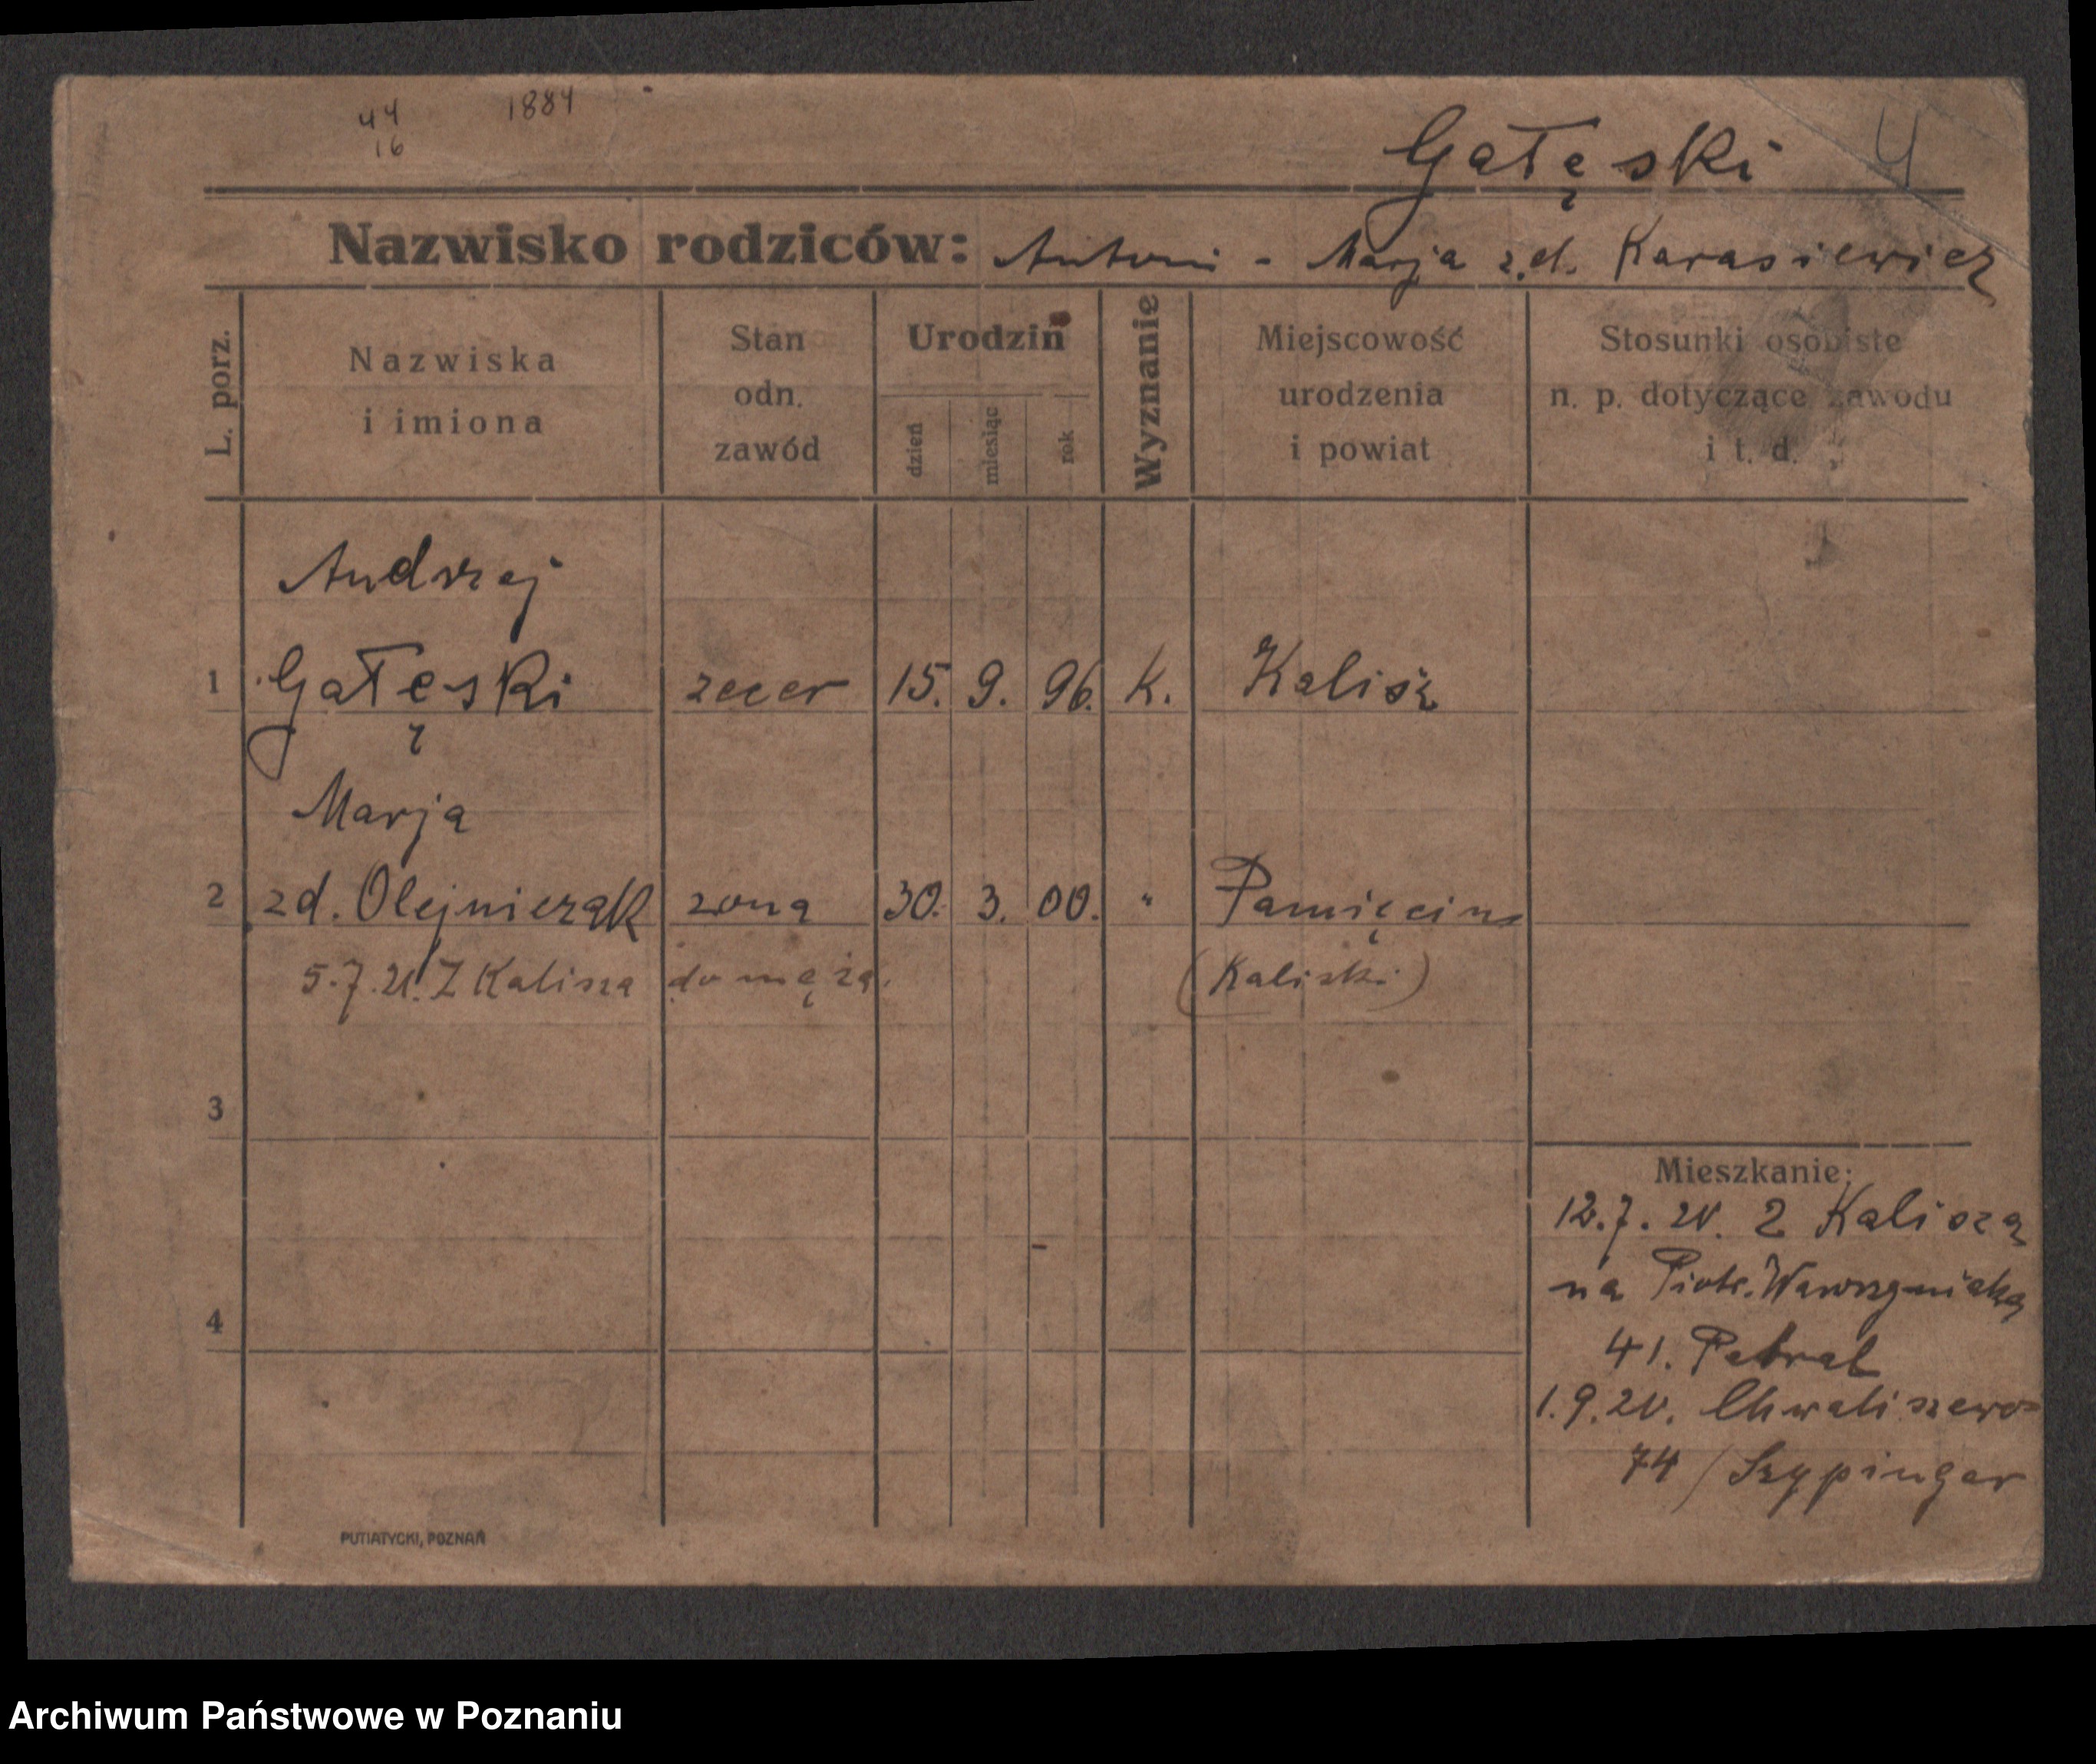 44 1884
16
Gałęski 4
Nazwisko rodziców: Antoni - Marja z.d. Karasiewicz
L. porz.
Nazwiska
i imiona
Stan
odn.
zawód
Urodzin
dzień
miesiąc
rok
Wyznanie
Miejscowość
urodzenia
i powiat
Stosunki osobiste
n. p. dotyczące zawodu
i t. d.
Andrzej
1 Gałęski zecer 15. 9. 96. K. Kalisz
Marja
2 zd. Olejniczak żona 30. 3. 00. " Pamięcin
5.7.21. Z Kalisza do męża. (Kaliski)
3
4
Mieszkanie:
12.7.20. z Kalisza
na Piotr. Wawrzyniaka
41. Patral
1.9.20. Chwaliszewo
74 / Szypinger
PUTIATYCKI, POZNAŃ
Archiwum Państwowe w Poznaniu